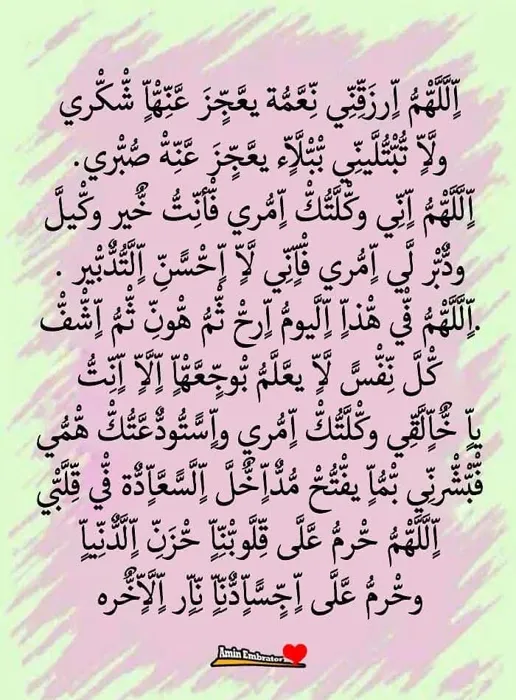 اٍّلَلَّهْمُ اٍِّرزَقٌِنِّي نِعٌَمُّة يعٌَجٍّزَ عٌَنِهّْاٍّ شٌّكْري
ولَاٍّ تٌُبْتٌُلَينِّي بٌْبْلَاٍّء يعٌَجٍّزَ عٌَنِهّْ صٌُبْري.
اٍّلَلَّهْمُ اٍّنِي وكْلَتٌُكْ اٍّمُري فَّأنِتٌُ خٌّير وكْيلَ
ودٌّبْر لَي اٍّمُري فَّاٍّنِي لَاٍّ اٍّحْسًنِ اٍّلَتٌُدٌّبْير .
.اٍّلَلَّهْمُ فَّي هّْذِاٍّ اٍّلَيومُ اٍّرحْ ثٌّمُ هّْونِ ثٌّمُ اٍّشٌّفَّ
كْلَ نِفَّسً لَاٍّ يعٌَلَمُ بْوجٍّعٌَهّْاٍّ اٍّلَاٍّ اٍّنِتٌُ
ياٍّ خٌّاٍّلَقٌِي وكْلَتٌُكْ اٍّمُري واٍّسًتٌُودٌّعٌَتٌُكْ هّْمُي
فَّبْشٌّرنِي بْمُاٍّ يفَّتٌُحْ مُدٌّاٍّخٌّلَ اٍّلَسًعٌَاٍّدٌّة فَّي قٌِلَبْي
اٍّلَلَّهْمُ حْرمُ عٌَلَى قٌِلَوبْنِاٍّ حْزَنِ اٍّلَدٌّنِياٍّ
وحْرمُ عٌَلَى اٍّجٍّسًاٍّدٌّنِاٍّ نِاٍّر اٍّلَاٍّخٌّره
Amin Embrator